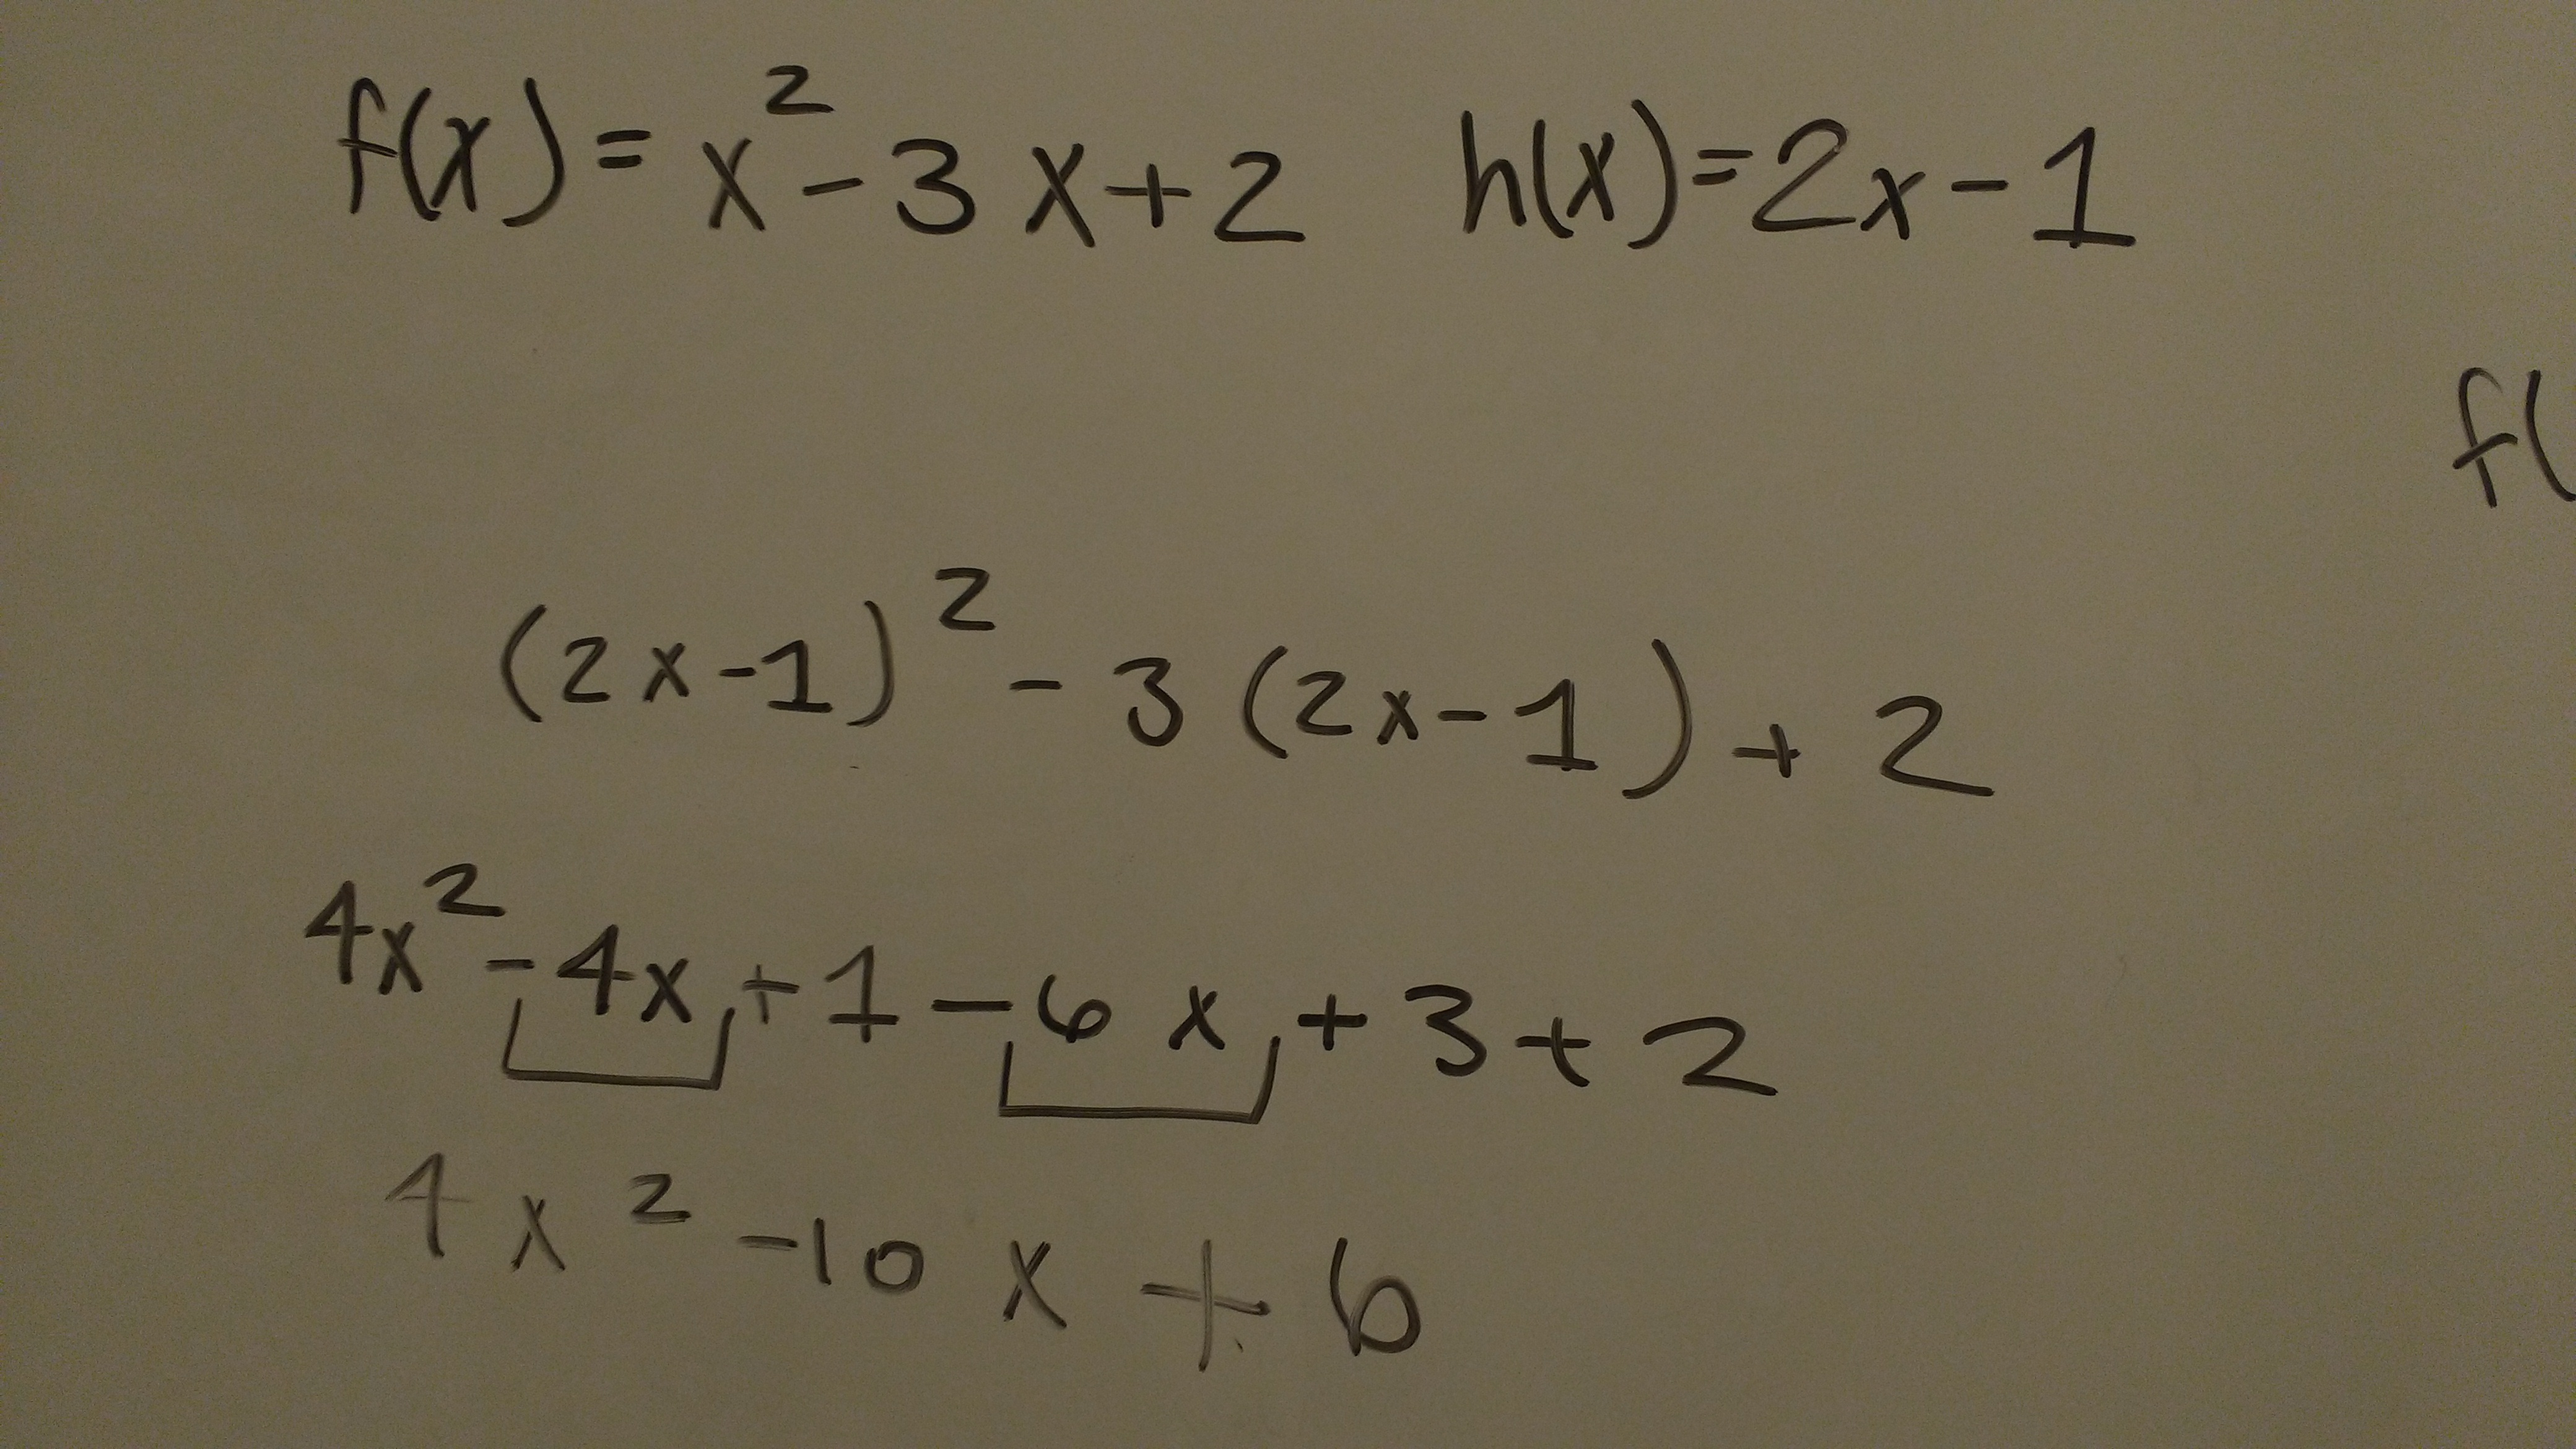 f(x) = x² - 3x + 2 h(x) = 2x - 1
f(
(2x - 1)² - 3(2x - 1) + 2
4x² - 4x + 1 - 6x + 3 + 2
4x² - 10x + 6